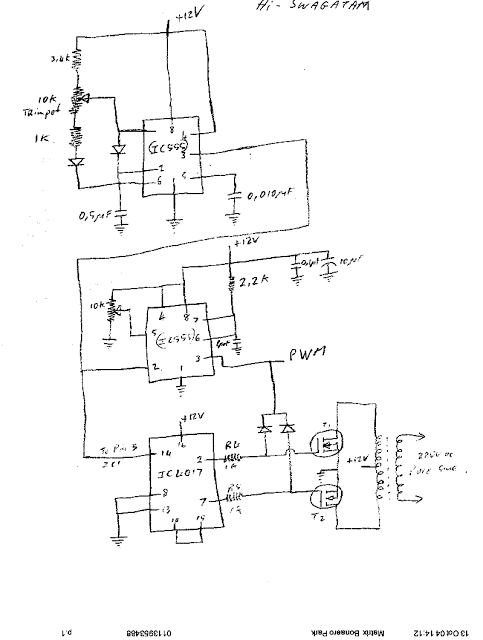 Hi - SWAGATAM
+12V
3,4K
10K
TRimpot
1K
8
4
(IC555)
3
2
6
1
5
0,5µF
0,010µF
+12V
0,1µF
10µF
2,2K
10K
4
8
7
5
(IC555)
6
2
3
1
PWM
+12V
16
To Pin 3
IC1
14
2
R4
1K
T1
IC4017
8
13
7
R5
1K
+12V
220V AC
Pure Sine
15
T2
p.1
0113953488
Matrix Bonaero Park
13 Oct 04 14:12